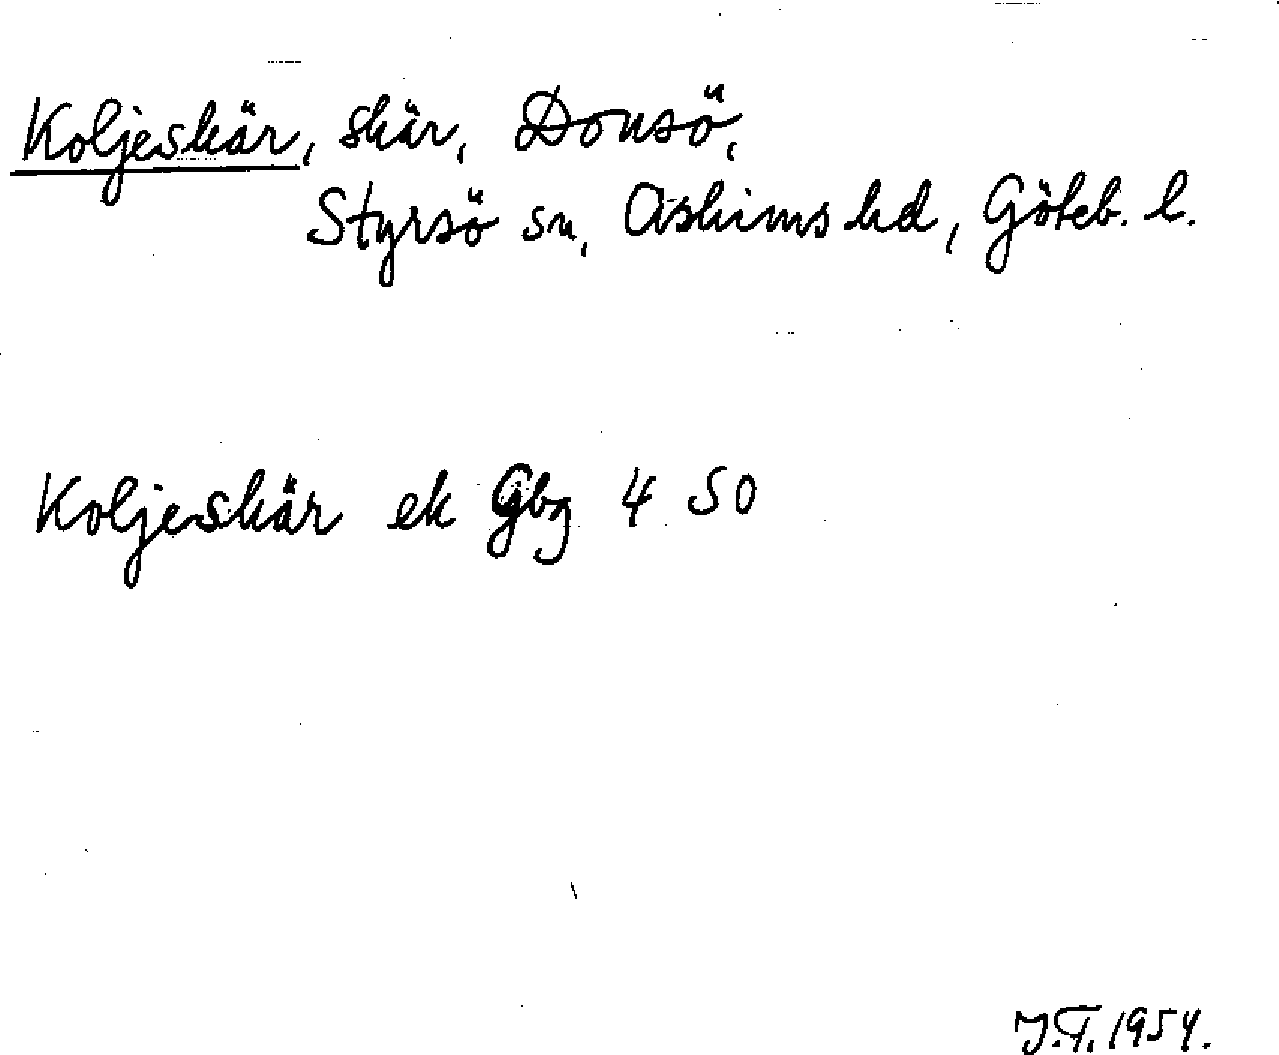 Koljeskär, skär, Donsö,
Styrsö sn, Askims hd, Göteb. l.
Koljeskär ek Gbg 4 SO
J.T. 1954.